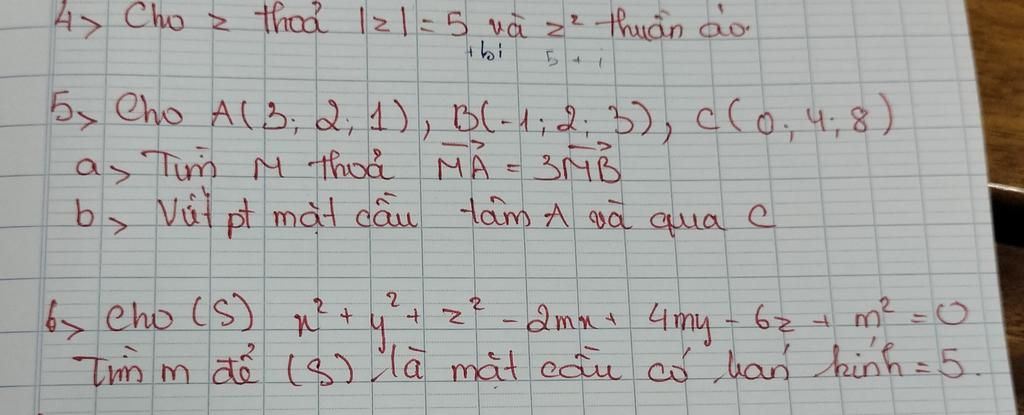 4> Cho z thoả |z| = 5 và z² thuần ảo.
+bi 5 + i
5> Cho A(3; 2; 1), B(-1; 2; 3), C(0; 4; 8)
a> Tìm M thoả \overrightarrow{MA} = 3\overrightarrow{MB}
b> Viết pt mặt cầu tâm A và qua C
6> Cho (S) x² + y² + z² - 2mx + 4my - 6z + m² = 0
Tìm m để (S) là mặt cầu có bán kính = 5.